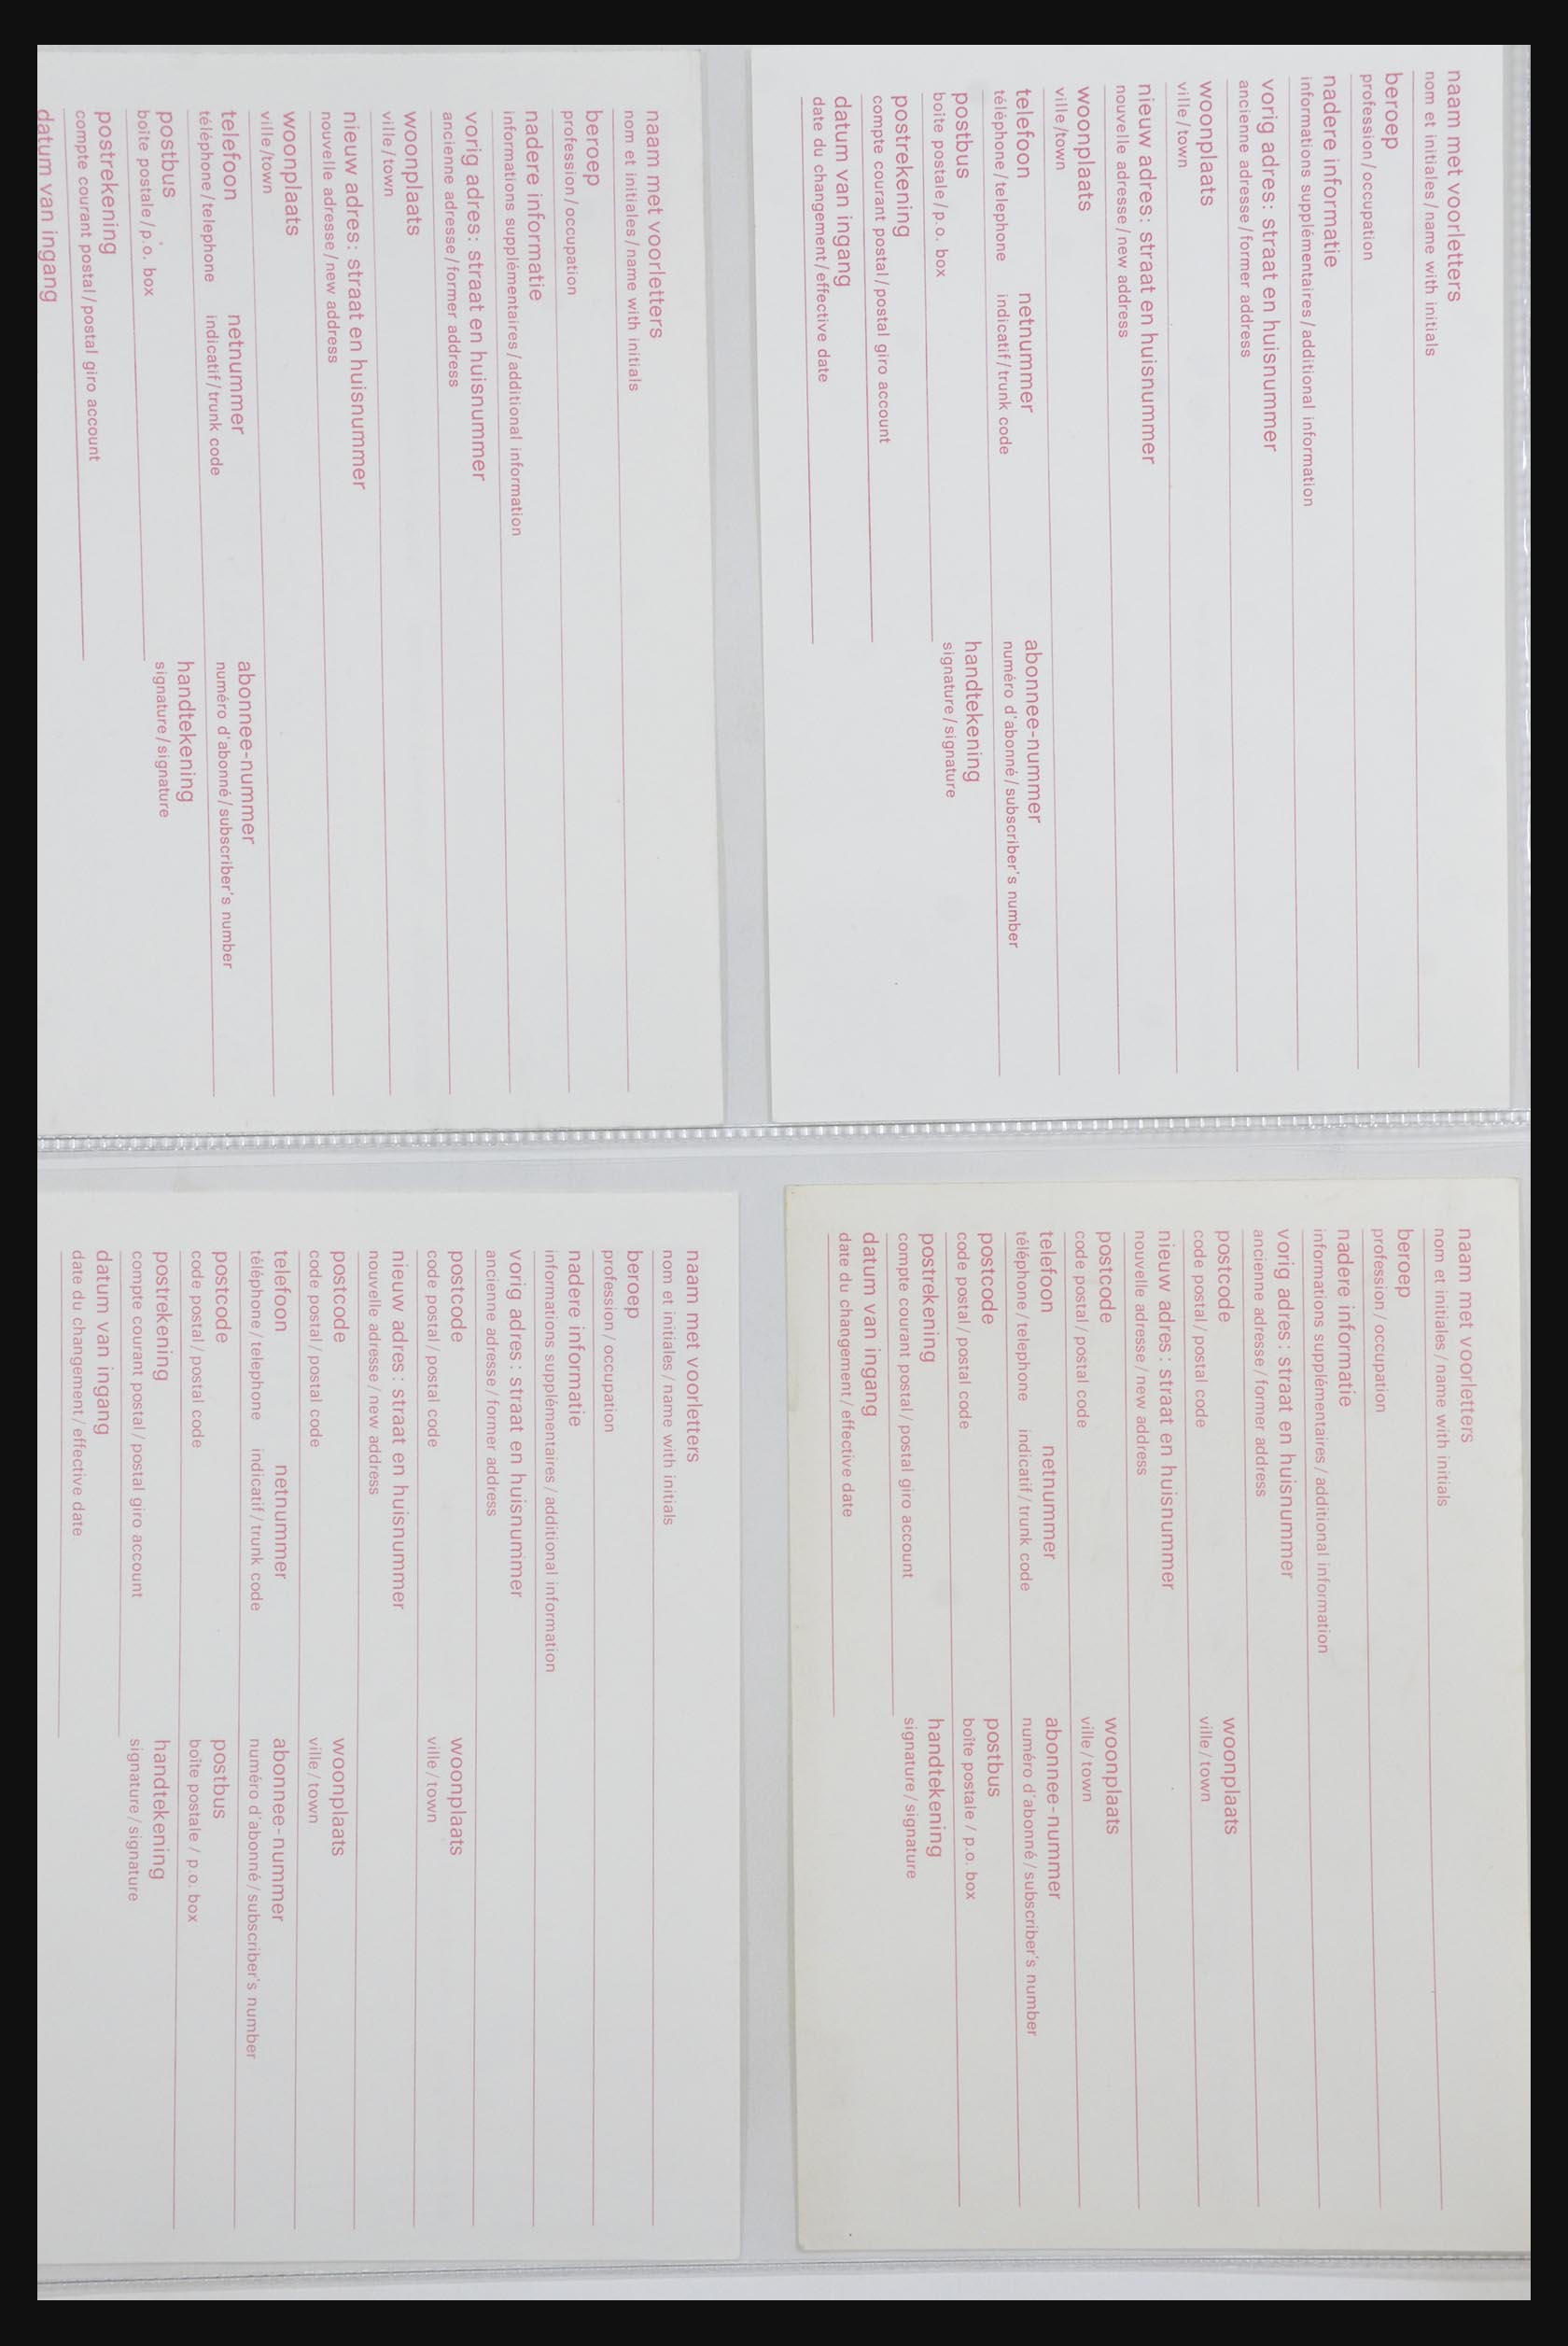 naam met voorletters
nom et initiales/name with initials
beroep
profession/occupation
nadere informatie
informations supplémentaires/additional information
vorig adres: straat en huisnummer
ancienne adresse/former address
woonplaats
ville/town
nieuw adres: straat en huisnummer
nouvelle adresse/new address
woonplaats
ville/town
telefoon netnummer abonnee-nummer
téléphone/telephone indicatif/trunk code numéro d'abonné/subscriber's number
postbus handtekening
boîte postale/p.o. box signature/signature
postrekening
compte courant postal/postal giro account
datum van ingang
date du changement/effective date
naam met voorletters
nom et initiales/name with initials
beroep
profession/occupation
nadere informatie
informations supplémentaires/additional information
vorig adres: straat en huisnummer
ancienne adresse/former address
woonplaats
ville/town
nieuw adres: straat en huisnummer
nouvelle adresse/new address
woonplaats
ville/town
telefoon netnummer abonnee-nummer
téléphone/telephone indicatif/trunk code numéro d'abonné/subscriber's number
postbus handtekening
boîte postale/p.o. box signature/signature
postrekening
compte courant postal/postal giro account
datum van ingang
naam met voorletters
nom et initiales/name with initials
beroep
profession/occupation
nadere informatie
informations supplémentaires/additional information
vorig adres: straat en huisnummer
ancienne adresse/former address
postcode woonplaats
code postal/postal code ville/town
nieuw adres: straat en huisnummer
nouvelle adresse/new address
postcode woonplaats
code postal/postal code ville/town
telefoon netnummer abonnee-nummer
téléphone/telephone indicatif/trunk code numéro d'abonné/subscriber's number
postcode postbus
code postal/postal code boîte postale/p.o. box
postrekening handtekening
compte courant postal/postal giro account signature/signature
datum van ingang
date du changement/effective date
naam met voorletters
nom et initiales/name with initials
beroep
profession/occupation
nadere informatie
informations supplémentaires/additional information
vorig adres: straat en huisnummer
ancienne adresse/former address
postcode woonplaats
code postal/postal code ville/town
nieuw adres: straat en huisnummer
nouvelle adresse/new address
postcode woonplaats
code postal/postal code ville/town
telefoon netnummer abonnee-nummer
téléphone/telephone indicatif/trunk code numéro d'abonné/subscriber's number
postcode postbus
code postal/postal code boîte postale/p.o. box
postrekening handtekening
compte courant postal/postal giro account signature/signature
datum van ingang
date du changement/effective date